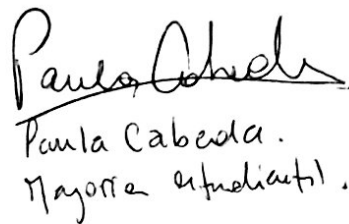 Paula Cabeda
Paula Cabeda.
Mayoría estudiantil.